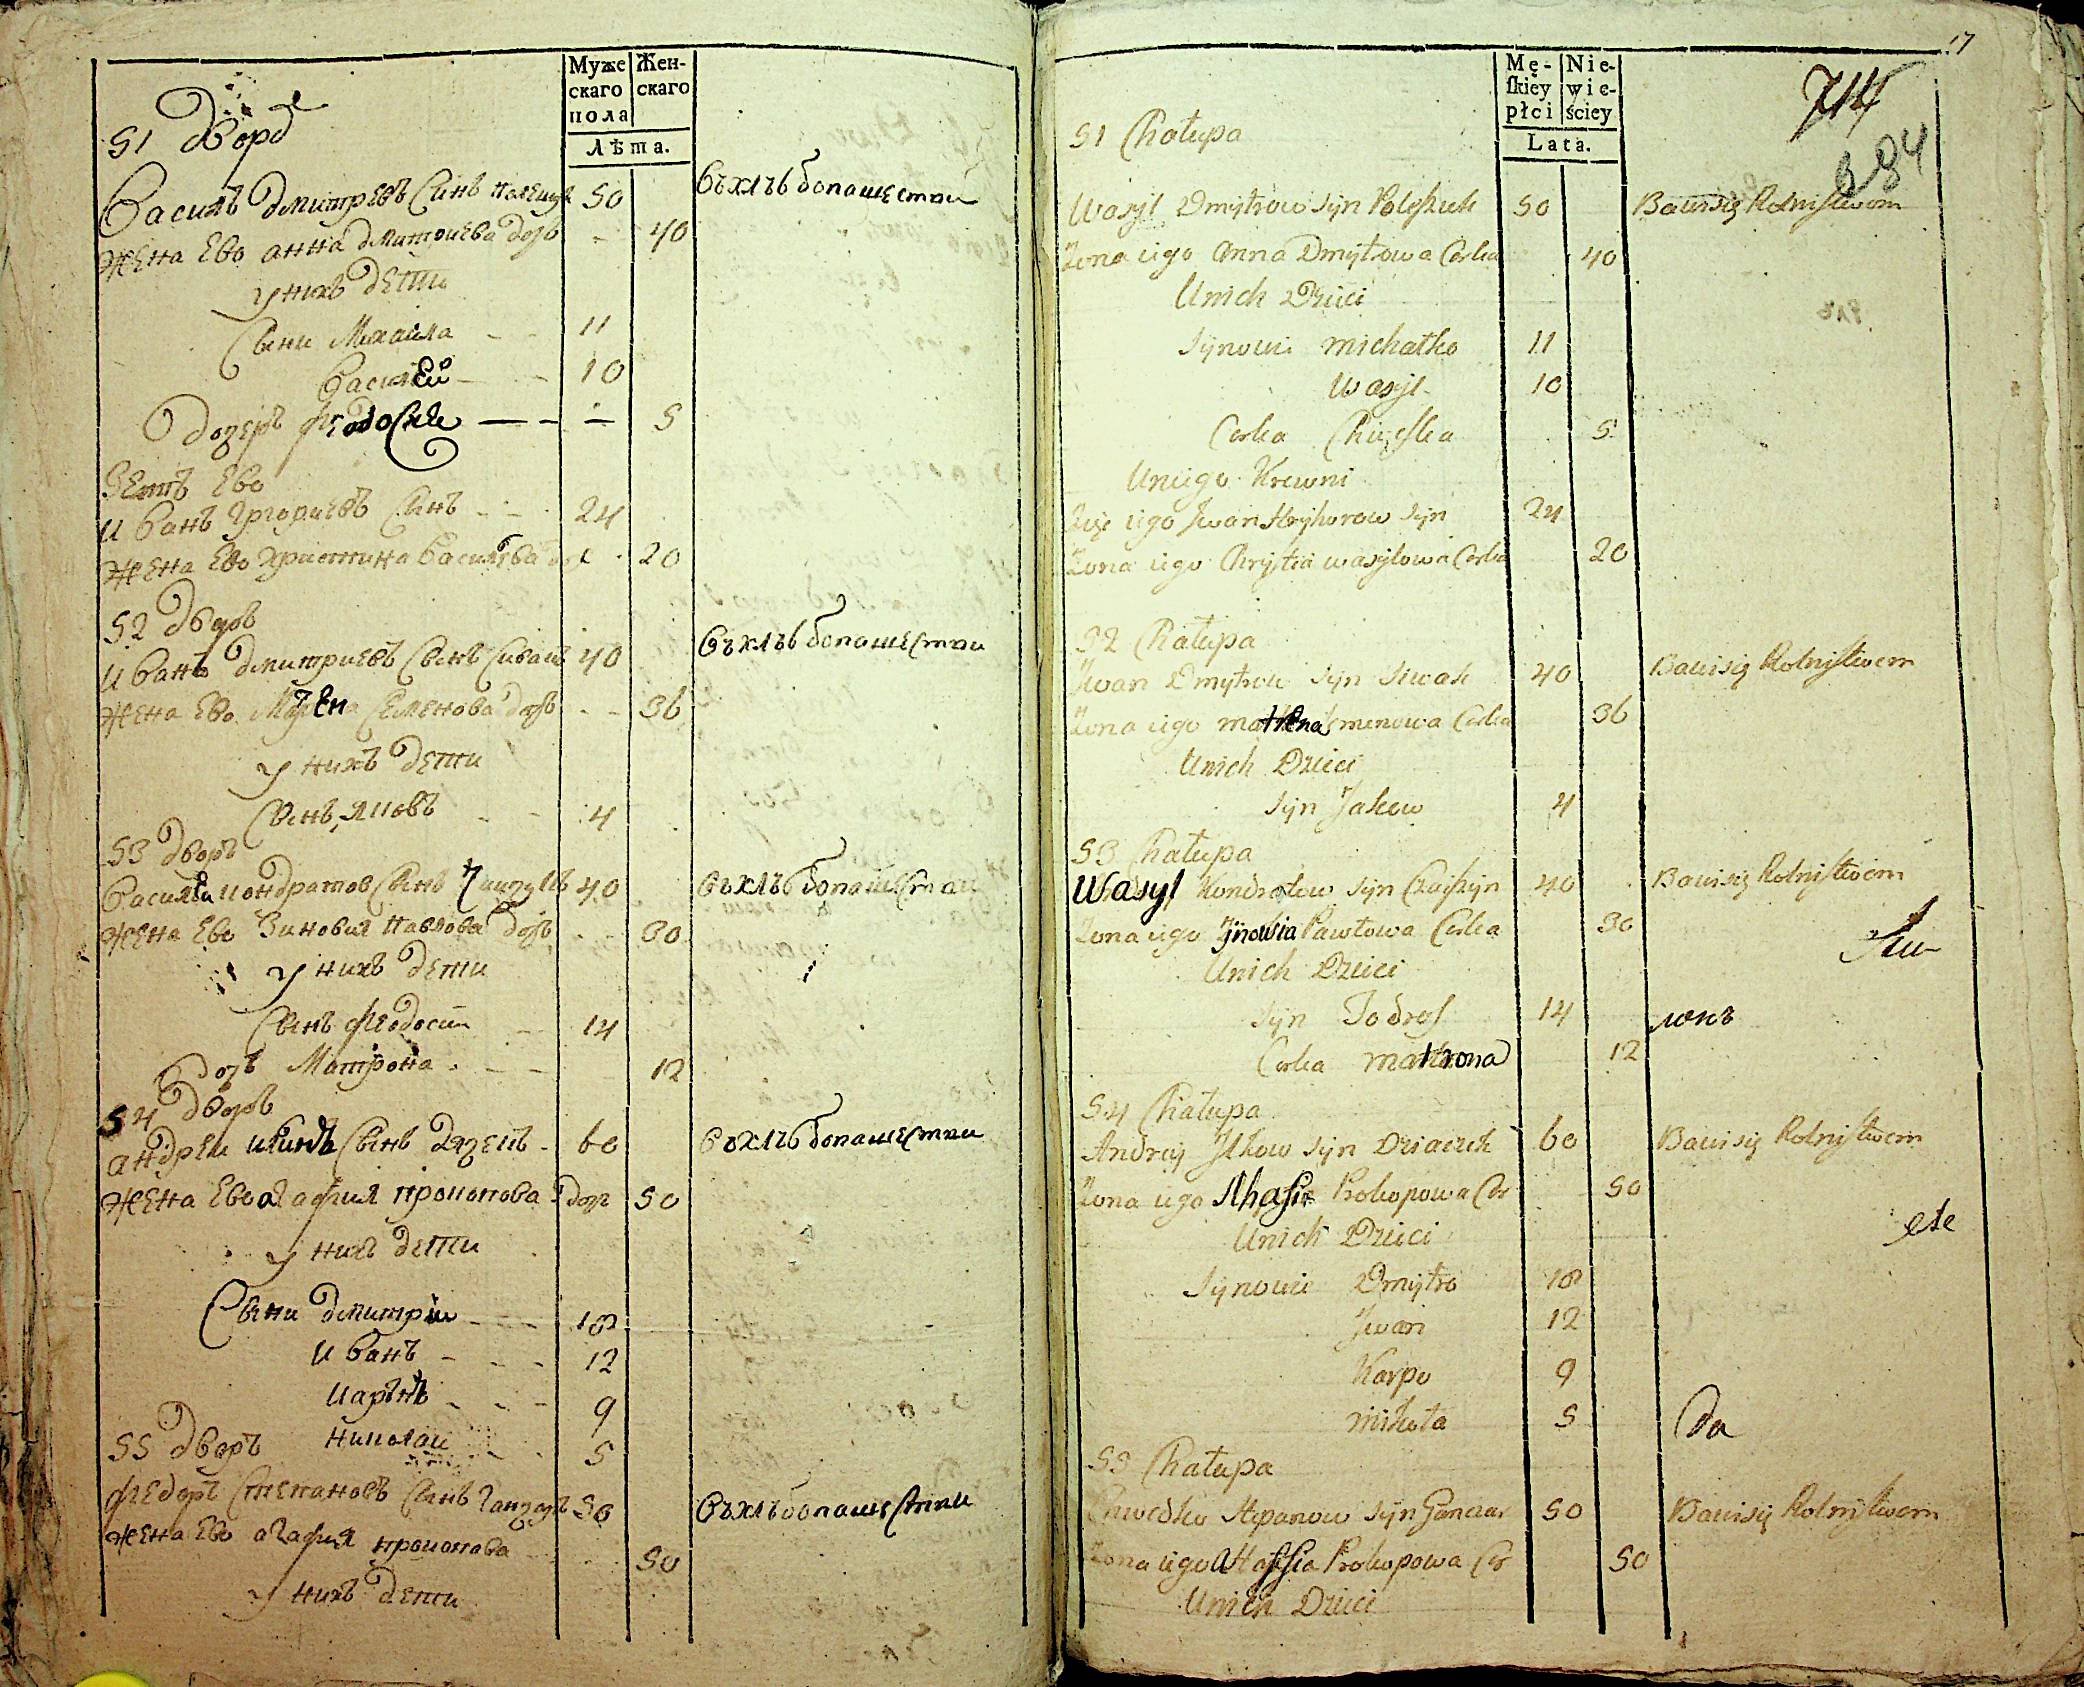 Муже
скаго
пола
Жен-
скаго
Лѣта.
51 дворъ
Василъ дмитревъ Синъ полещук 50 Въхлѣбопашестви
жена ево анна дмитриева дочь 40
у нихъ дети
Сыни Михаила 11
Василей 10
дочерь феодосия 5
Зеть ево
иванъ григориевъ Синъ 24
жена ево христина василева доч 20
52 дворъ
иванъ дмитриевъ Сынъ Сивакъ 40 Въхлѣбопашестви
жена ево Матрена Семенова дочь 36
у нихъ дети
Сынъ яковъ 4
53 дворъ
Василей кондратов Сынъ 40 Въхлѣбопашестви
жена ево Зиновия павлова дочь 30
у нихъ дети
Сынъ феодосий 14
дочь Матрона 12
54 дворъ
андреи Сынъ дячекъ 60 Въхлѣбопашестви
жена ево агафия прокопова доч 50
у нихъ дети
Сыни дмитрий 18
иванъ 12
карпъ 9
николай 5
55 дворъ
федоръ Степановъ Сынъ ганчаръ 50 Въхлѣбопашестви
жена ево агафия прокопова 50
у нихъ дети
17
714
684
Mę-
skiey
płci
Nie-
wie-
ściey
Lata.
51 Chałupa
Wasyl Dmytrow syn Poleszuk 50 Bawisię Rolnistwem
Żona iego Anna Dmytrowa Corka 40
Unich Dzieci
Synowie Michałko 11
Wasyl 10
Corka 5
Uniego Krewni
Zięć iego Jwan Hryhorow syn 24
Żona iego Chrystia wasylowa Corka 20
52 Chałupa
Jwan Dmytrow syn Siwak 40 Bawisię Rolnistwem
Żona iego matrena Semenowa Corka 36
Unich Dzieci
syn Jakow 4
53 Chałupa
Wasyl Kondratow syn 40 Bawisię Rolnistwem
Żona iego Zynowia Pawłowa Corka 30
Unich Dzieci
syn Todros 14
Corka matrona 12
54 Chałupa
Andrey Jlkow syn Dziaczek 60 Bawisię Rolnistwem
Żona iego Prokopowa Cor 50
Unich Dzieci
Synowie Dmytro 18
Jwan 12
Karpo 9
mikoła 5
Da
55 Chałupa
Chwedko Stepanow syn Ganczar 50 Bawisię Rolnistwem
Żona iego Prokopowa Cor 50
Unich Dzieci